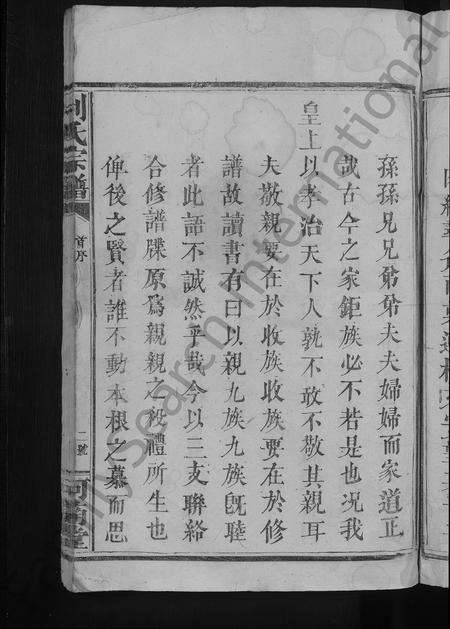 孫孫兄兄弟弟夫夫婦婦而家道正
哉古今之家鉅族必不若是也况我
皇上以孝治天下人孰不敢不敬其親耳
夫敬親要在於收族收族要在於修
譜故讀書有曰以親九族九族旣睦
者此語不誠然乎哉今以三支聯絡
合修譜牒原爲親親之殺禮所生也
俾後之賢者誰不動本根之慕而思
劉氏宗譜
首序
二號